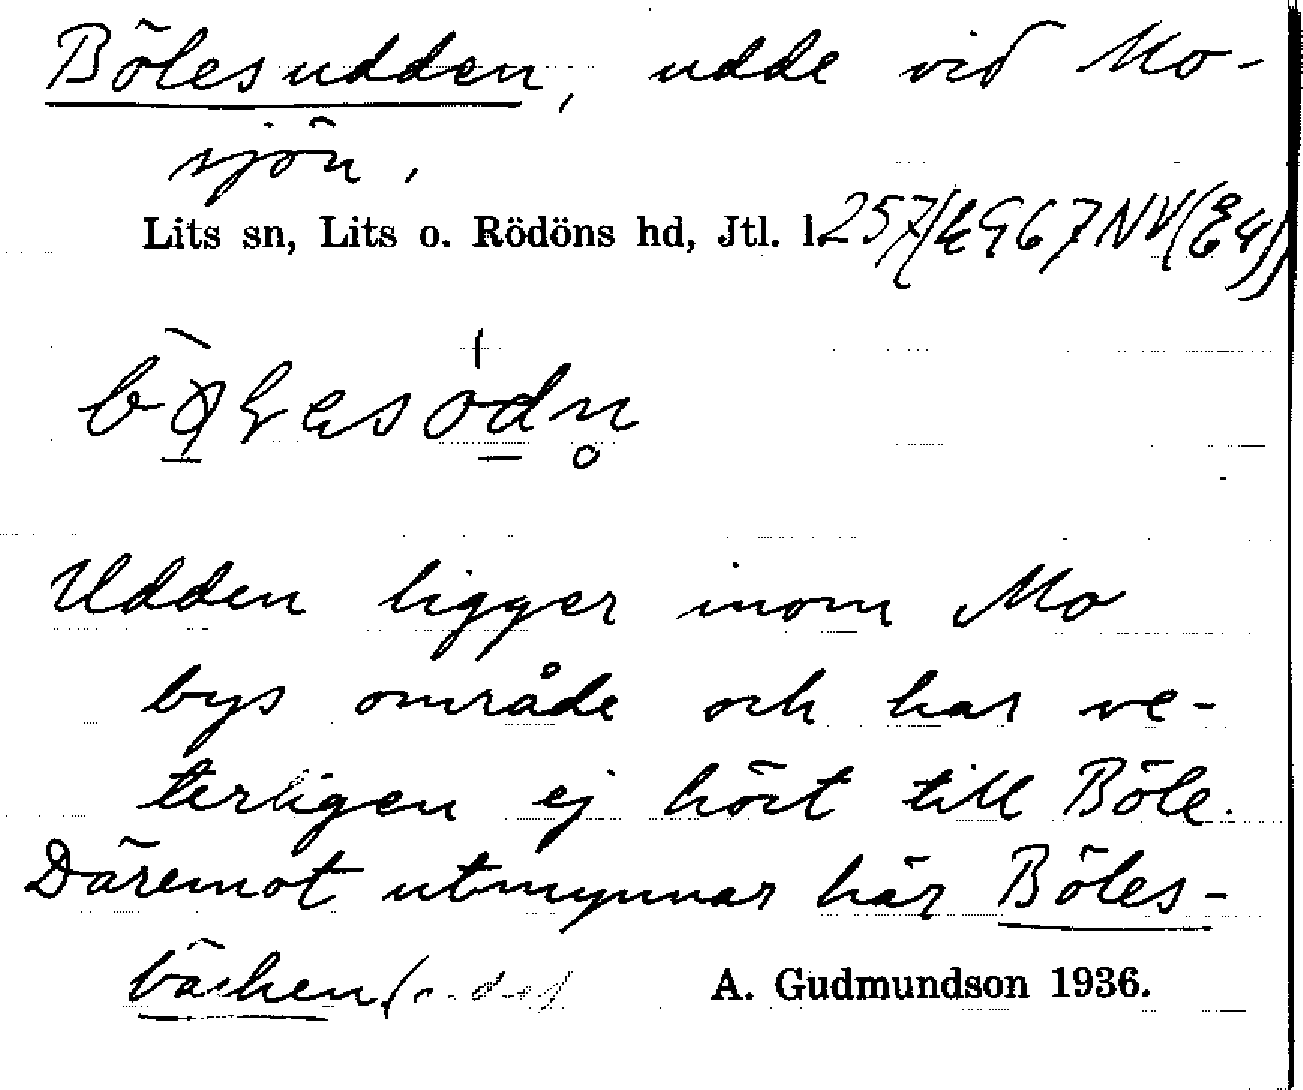 Bölesudden, udde vid Mo-
sjön.
Lits sn, Lits o. Rödöns hd, Jtl. l.
Udden ligger inom Mo
bys område och har ve-
terligen ej hört till Böle.
Däremot utmynnar här Böles-
bäcken
A. Gudmundson 1936.